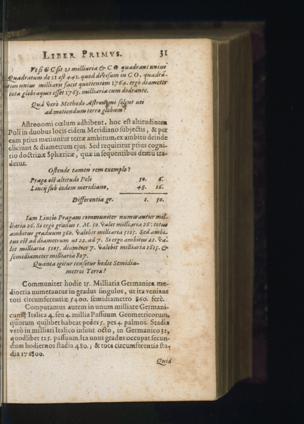 LIBER PRIMVS. 31
Vt si C sit 21 milliaria & CO quadrans unius
Quadratum de 21 est 441. quod divisum in CO. quadrã-
tem unius milliaris facit quotientem 1764. ergo diameter
tota globi aquei esset 1765. milliaria cum quadrante.
Quâ verò Methodo Astronomi solent uti
ad metiendum terræ globum?
Astronomi cœlum adhibent, hoc est altitudinem
Poli in duobus locis eidem Meridiano subjectis, & per
eam prius metiuntur terræ ambitum, ex ambitu deinde
eliciunt & diametrum ejus. Sed requiritur prius cogni-
tio doctrinæ Sphæricæ, quæ in sequentibus demũ tra-
detur.
Ostende tamen rem exemplo?
Praga est altitudo Poli 50. 6.
Lincij sub eodem meridiano, 48. 16.
Differentia gr. 1. 50.
Iam Lincio Pragam communiter numerantur mil-
liaria 26. Si ergo gradus 1. M. 50. valet milliaria 26: totus
ambitus graduum 360. valebit milliaria 5105. Sed ambi-
tus est ad diametrum ut 22. ad 7. Si ergo ambitus 22. va-
let milliaria 5105. diameter 7. valebit milliaria &
semidiameter milliaria
Quanta igitur censetur hodie Semidia-
metros Terræ?
Communiter hodie 15. Milliaria Germanica me-
diocria numerantur in gradus singulos, ut ita veniant
toti circumferentiæ 5400. semidiametro 860. ferè.
Computamus autem in unum milliare Germani-
cum Italica 4. seu 4. millia Passuum Geometricorum,
quorum quilibet habeat pedes 5. pes 4. palmos. Stadia
verò in milliari Italico insunt octo, in Germanico 32,
quodlibet 125. passuum. Ita unus gradus occupat secun-
dum hodiernos stadia 480, & tota circumferentia sta-
dia 172800.
Quid